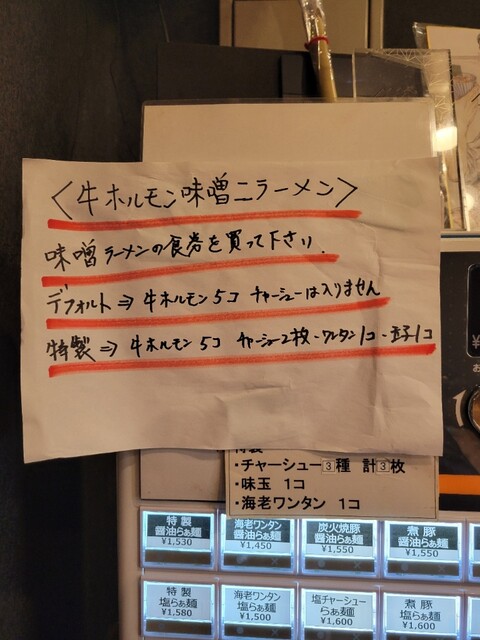 <牛ホルモン味噌ニラーメン>
味噌ラーメンの食券を買って下さい.
デフォルト⇒牛ホルモン5コ チャーシューは入りません
特製⇒牛ホルモン5コ チャーシュー2枚・ワンタン1コ・玉子1コ
特製
・チャーシュー3種 計3枚
・味玉 1コ
・海老ワンタン 1コ
特製
醤油らぁ麺
¥1,530
海老ワンタン
醤油らぁ麺
¥1,450
炭火焼豚
醤油らぁ麺
¥1,550
煮豚
醤油らぁ麺
¥1,550
特製
塩らぁ麺
¥1,580
海老ワンタン
塩らぁ麺
¥1,500
塩チャーシュー
らぁ麺
¥1,600
煮豚
塩らぁ麺
¥1,600